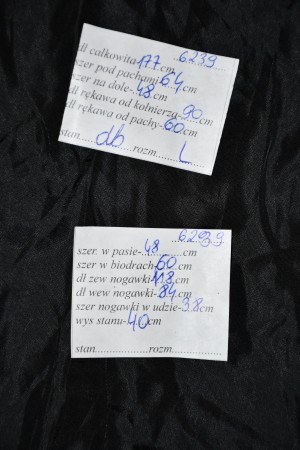 6239
dl całkowita-177.cm
szer pod pachami 64.cm
szer na dole-48.cm
dl rękawa od kołnierza-90cm
dl rękawa od pachy-60cm
stan....db.....rozm....L......
6239
szer. w pasie-.48.......cm
szer w biodrach-60.cm
dl zew nogawki-118.cm
dl wew nogawki-84.cm
szer nogawki w udzie-38cm
wys stanu-40cm
stan..............rozm..............